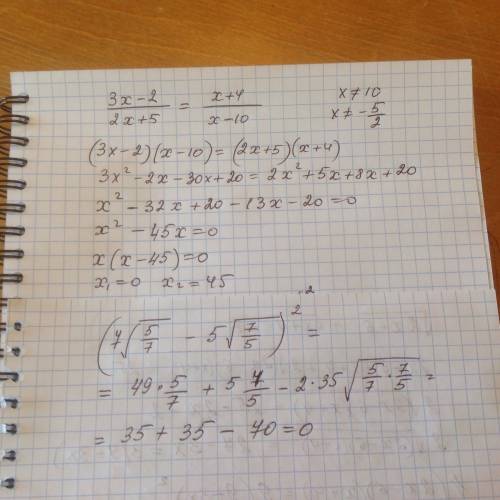 (3x-2)/(2x+5) = (x+4)/(x-10)    x≠10
x≠-5/2
(3x-2)(x-10)=(2x+5)(x+4)
3x²-2x-30x+20=2x²+5x+8x+20
x²-32x+20-13x-20=0
x²-45x=0
x(x-45)=0
x₁=0  x₂=45
(7√(5/7) - 5√(7/5))² ·² =
= 49·5/7 + 5 7/5 - 2·35√(5/7·7/5) =
= 35+35-70=0